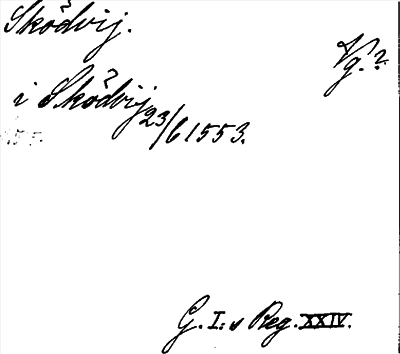 Sködvij.
Vg.?
i Sködvij 23/6 1553.
G. I:s Reg. XXIV.